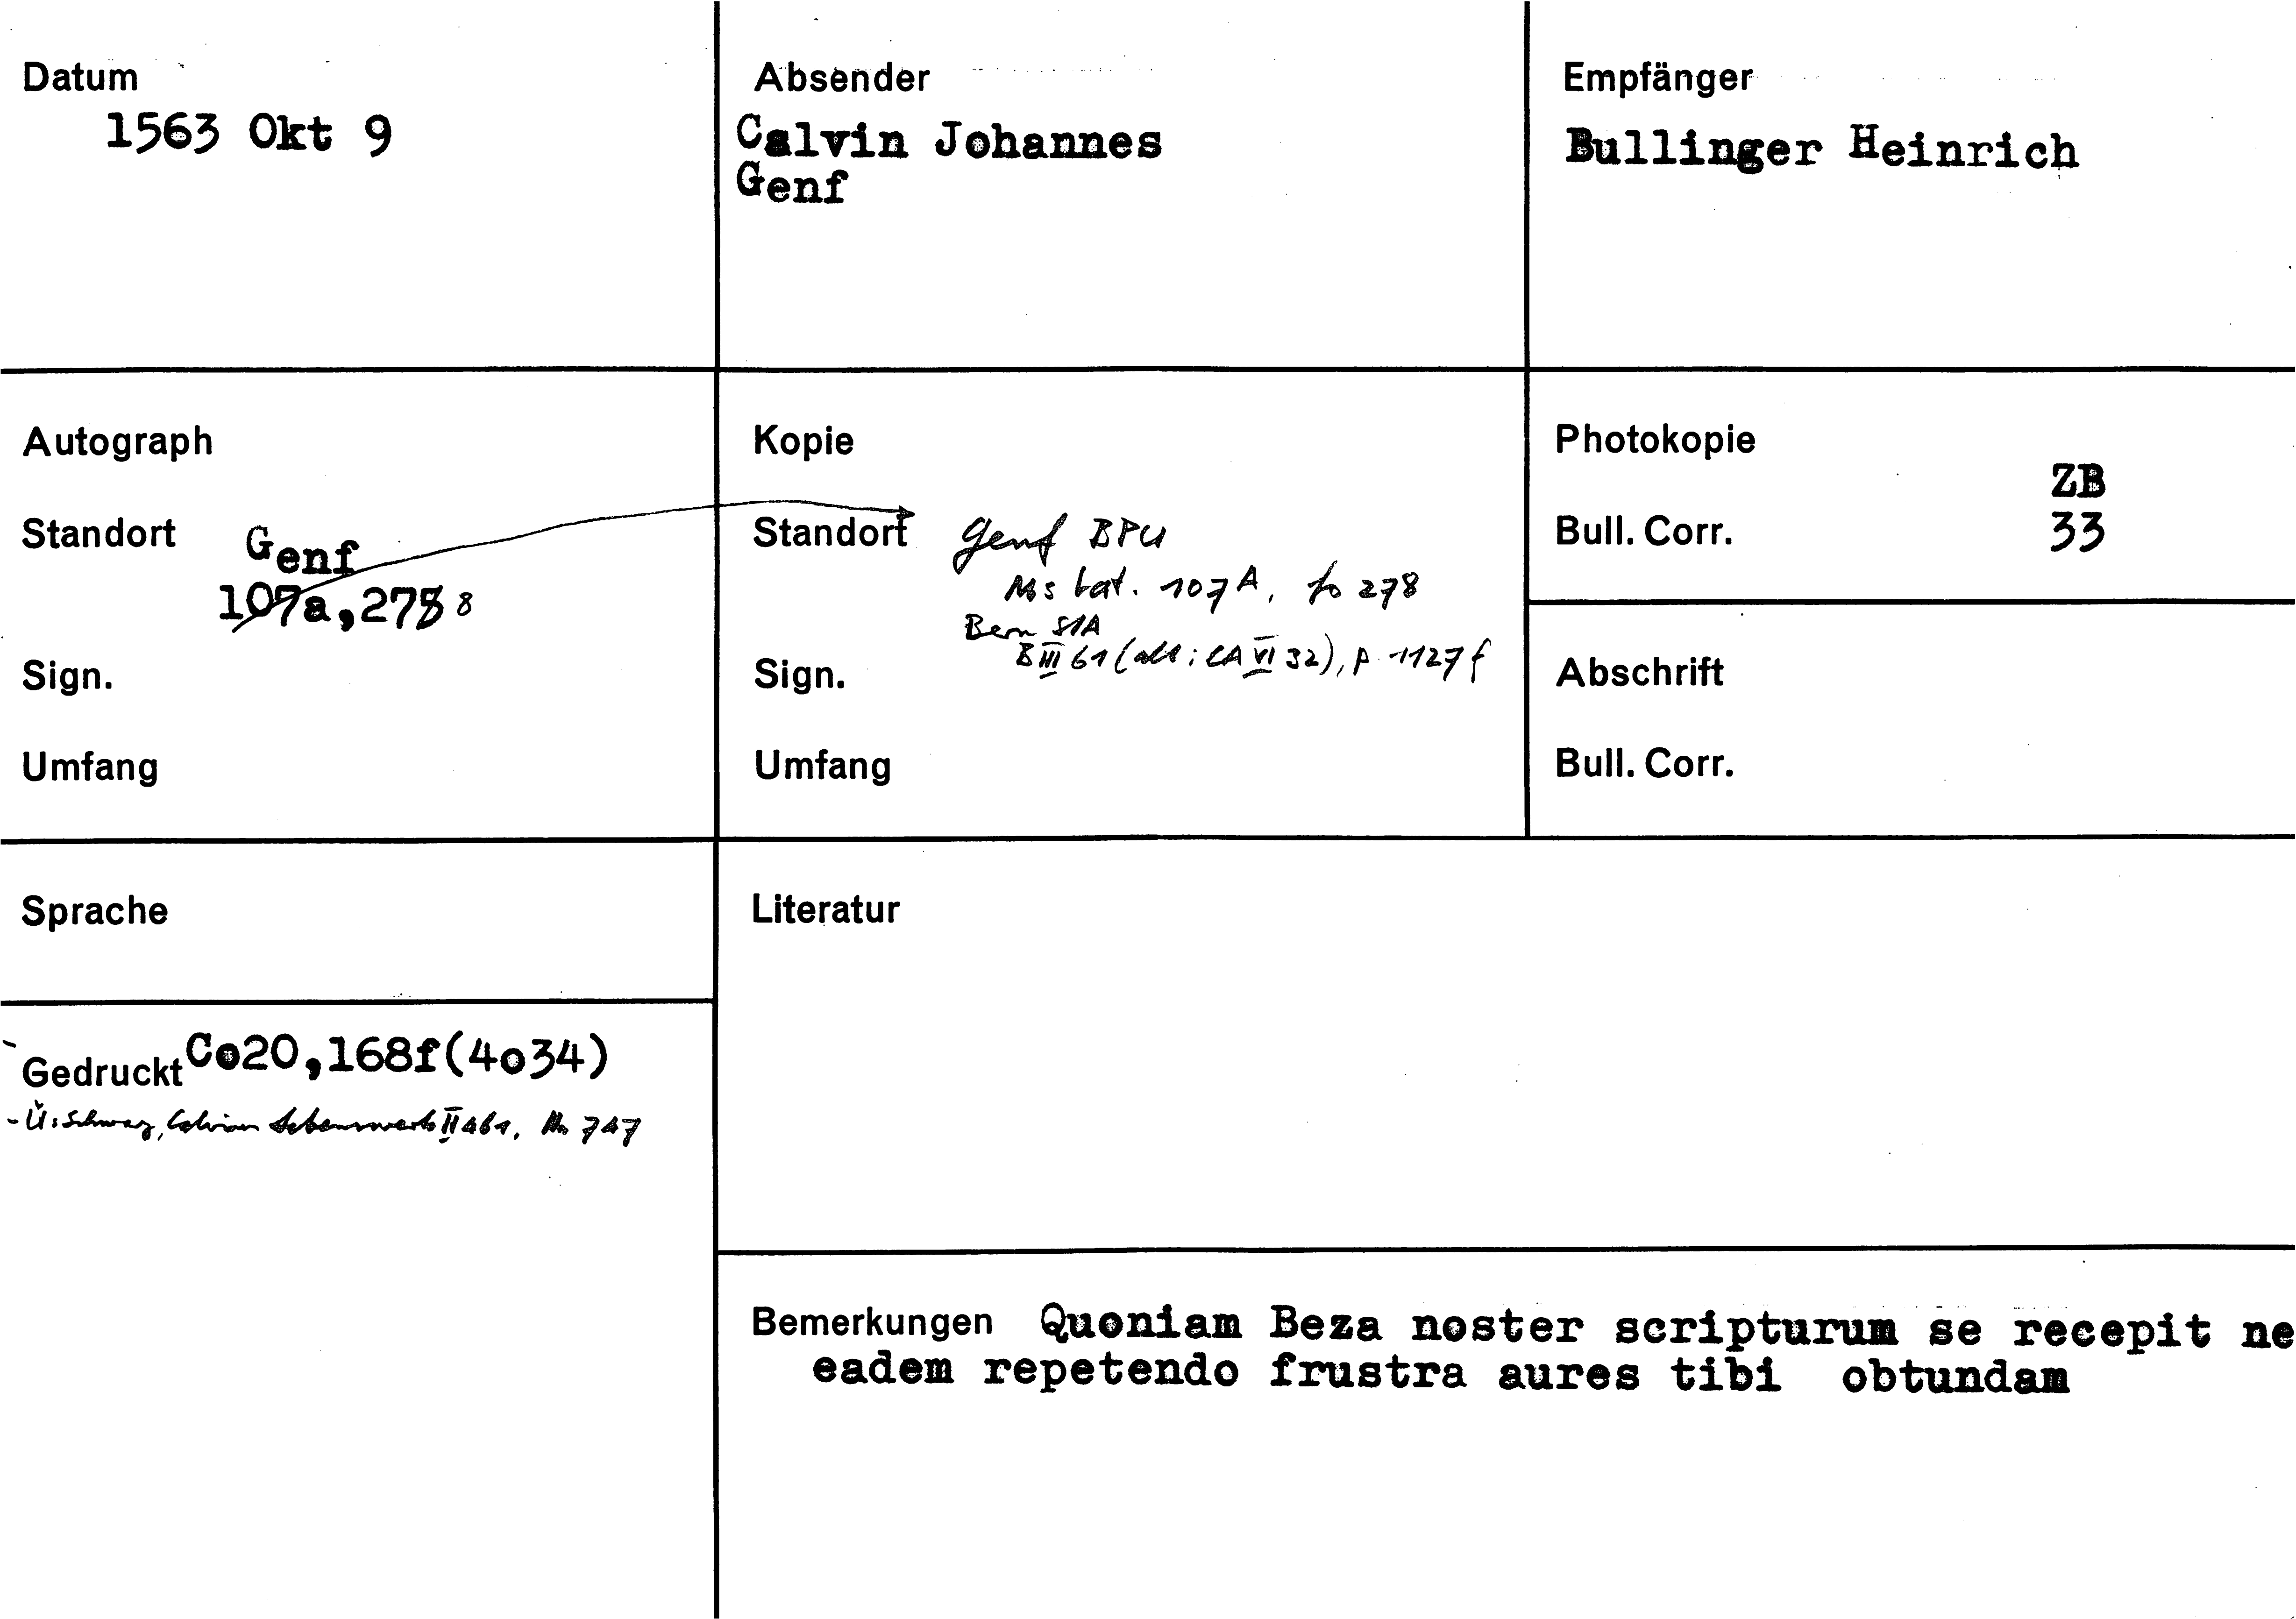 Datum
1563 Okt 9
Absender
Calvin Johannes
Genf
Empfänger
Bullinger Heinrich
Autograph
Standort Genf
107a,275 8
Sign.
Umfang
Kopie
Standort Genf BPU
Ms lat. 107A, fo 278
Bern StA
B III 61 (alt: EA VI 32), p. 1127 f
Sign.
Umfang
Photokopie
ZB
Bull. Corr. 33
Abschrift
Bull. Corr.
Sprache
Literatur
Gedruckt Co20,168f(4o34)
- Ü: Schwarz, Calvins Lebenswerk II 461, Nr. 747
Bemerkungen Quoniam Beza noster scripturum se recepit ne
eadem repetendo frustra aures tibi obtundam